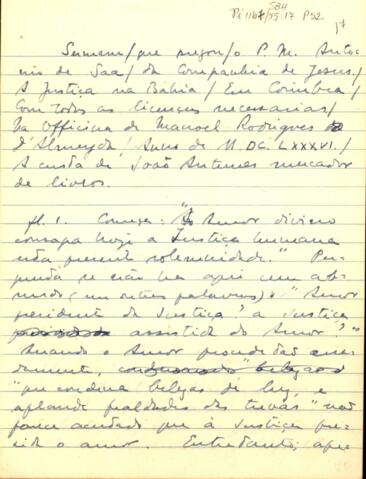 Pi 1167/55:17 P52
17
Sermam/que pregou/o P. M. Anto-
nio de Saa/da Companhia de Jesus./
A Justiça na Bahia/Em Coimbra/
Com todas as licenças necessarias/
Na Officina de Manoel Rodrigues
d'Almeyda/Anno de M.DC.LXXXVI./
A custa de João Antunes mercador
de livros.
fl. 1. Começa: "Ao Amor divino
consagra hoje a Justiça humana
esta presente solemnidade." Per-
gunta se não ha aqui um
(em outras palavras): "Amor
presidente da Justiça? a Justiça
assistida do Amor?"
Quando o Amor procede
"que condena belezas de luz, e
aplaude fealdades das trevas" não
parece acertado que à Justiça pre-
sida o amor. Entretanto, ape-